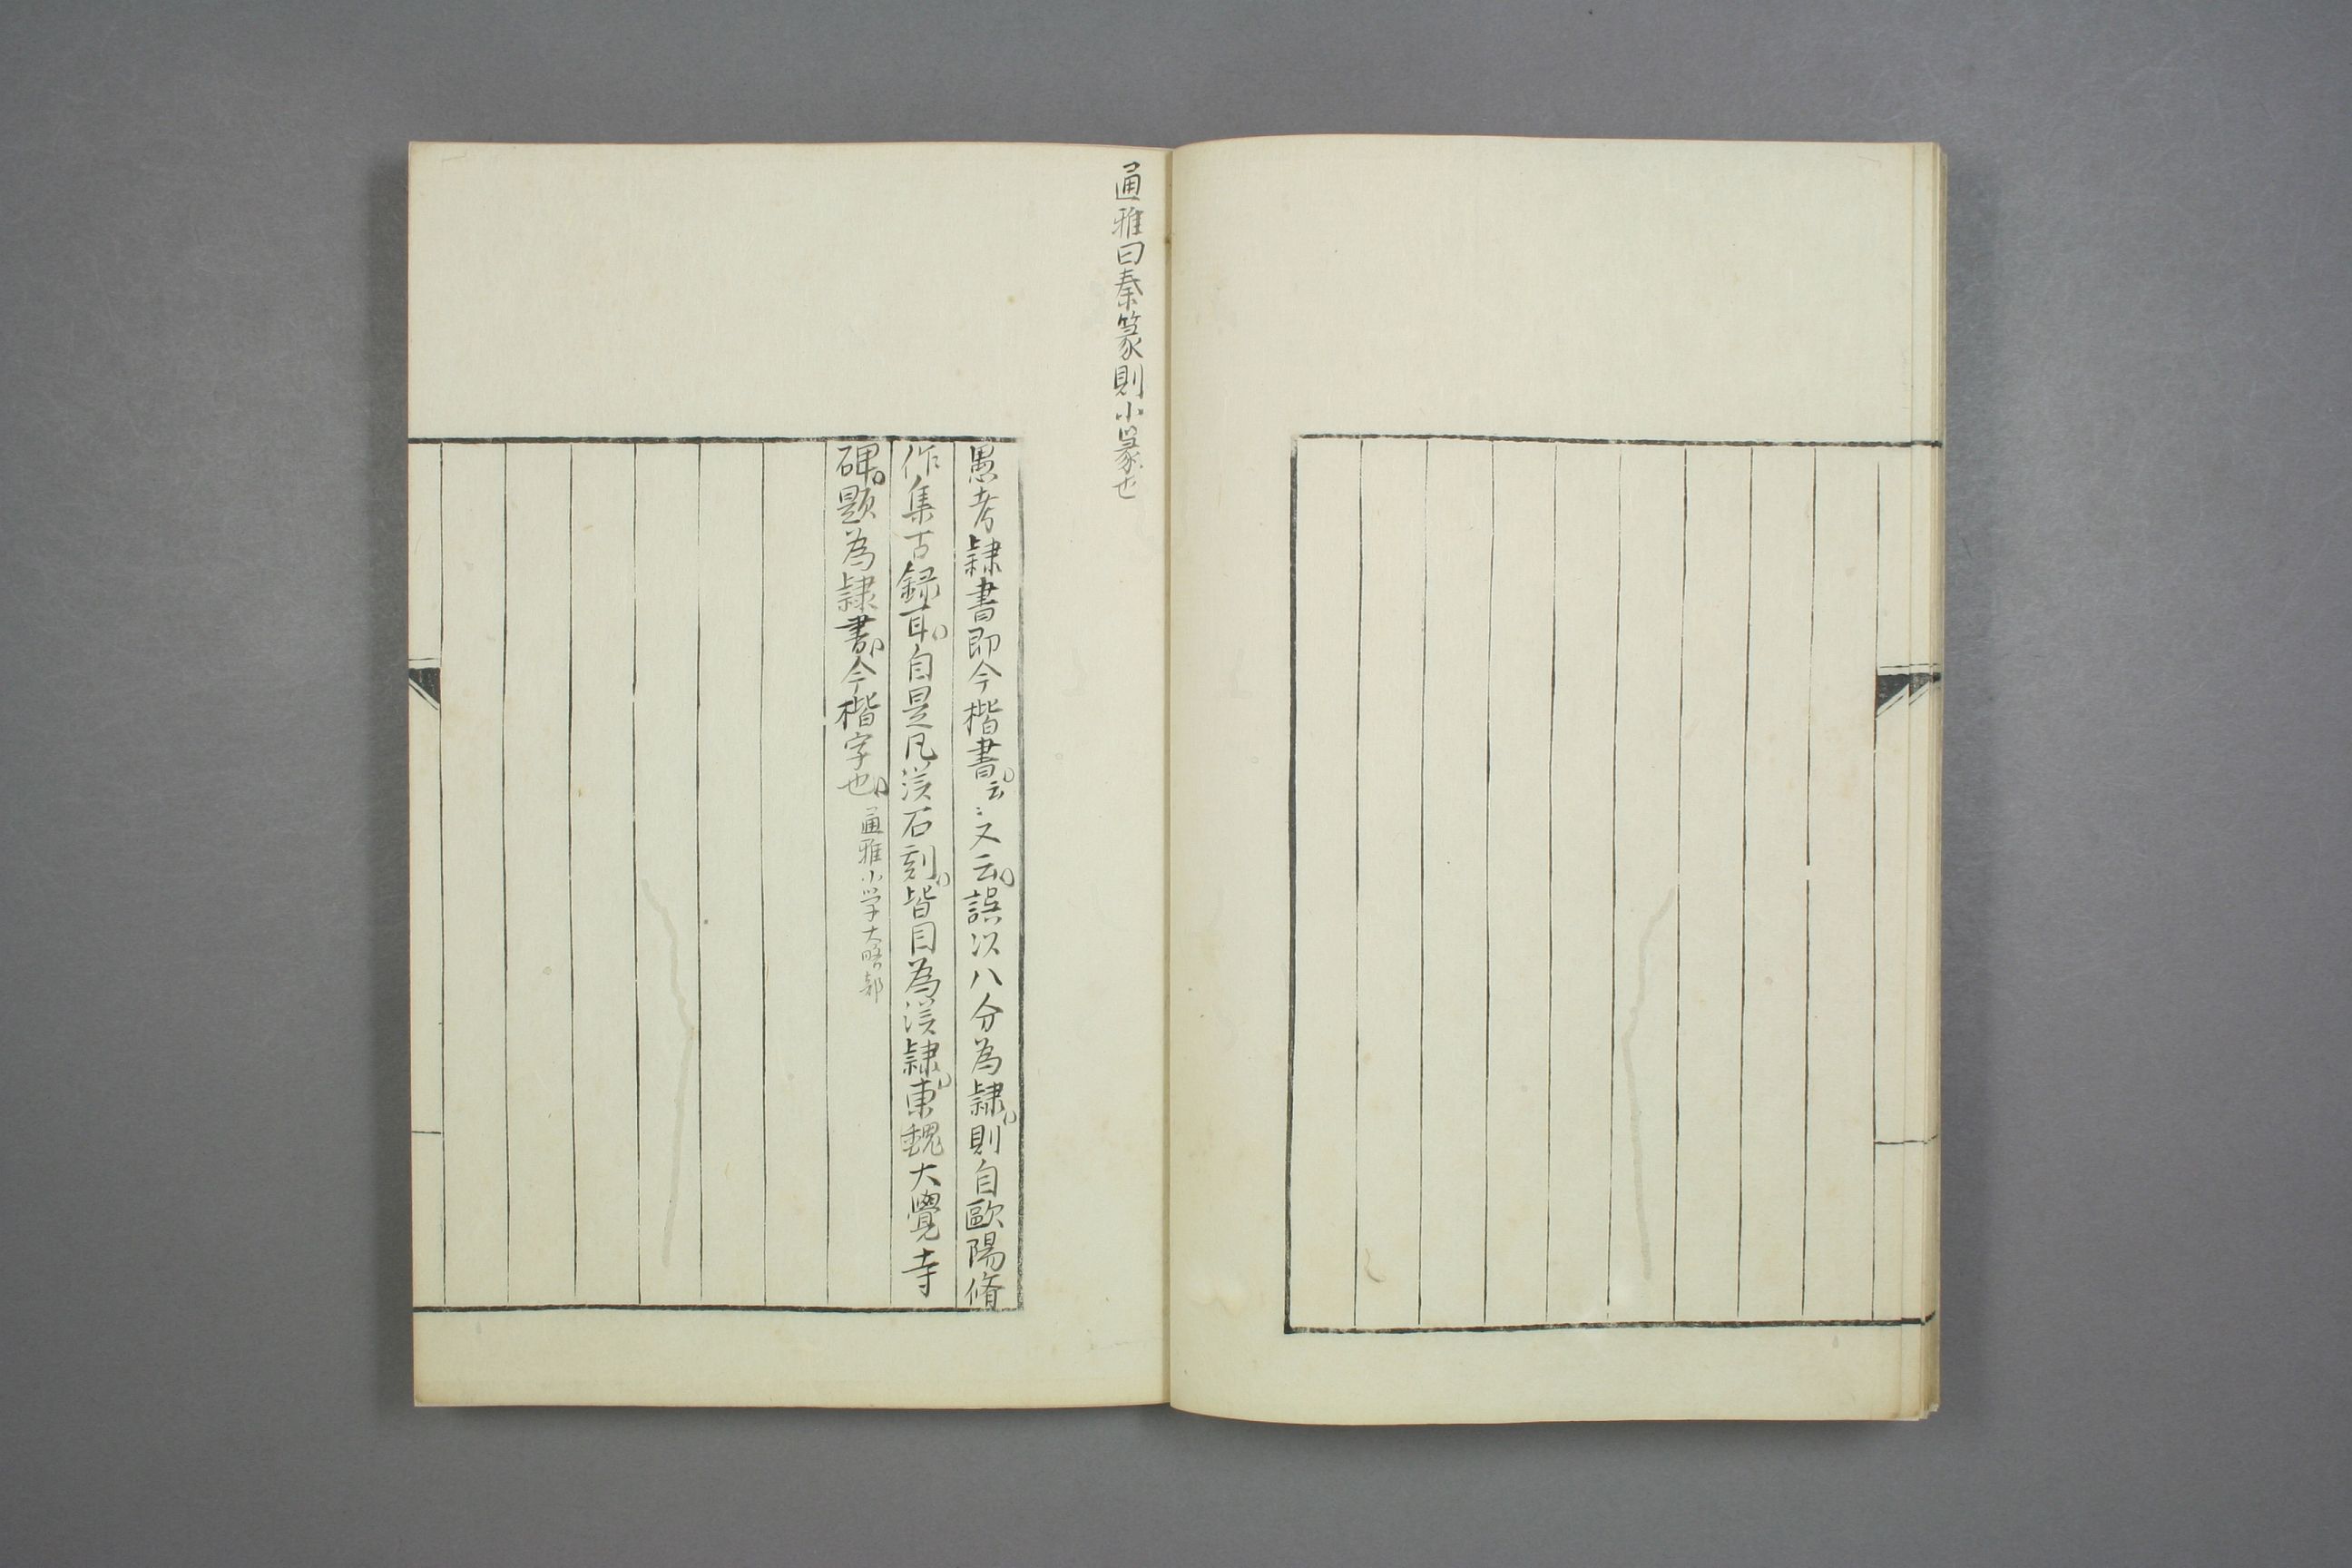 通雅曰秦篆則小篆也
愚考隷書即今楷書。云〻又云。誤以八分為隷。則自歐陽脩
作集古録耳。自是凡漢石刻。皆目為漢隷。東魏大覺寺
碑。題為隷書。今楷字也。通雅小学大略部